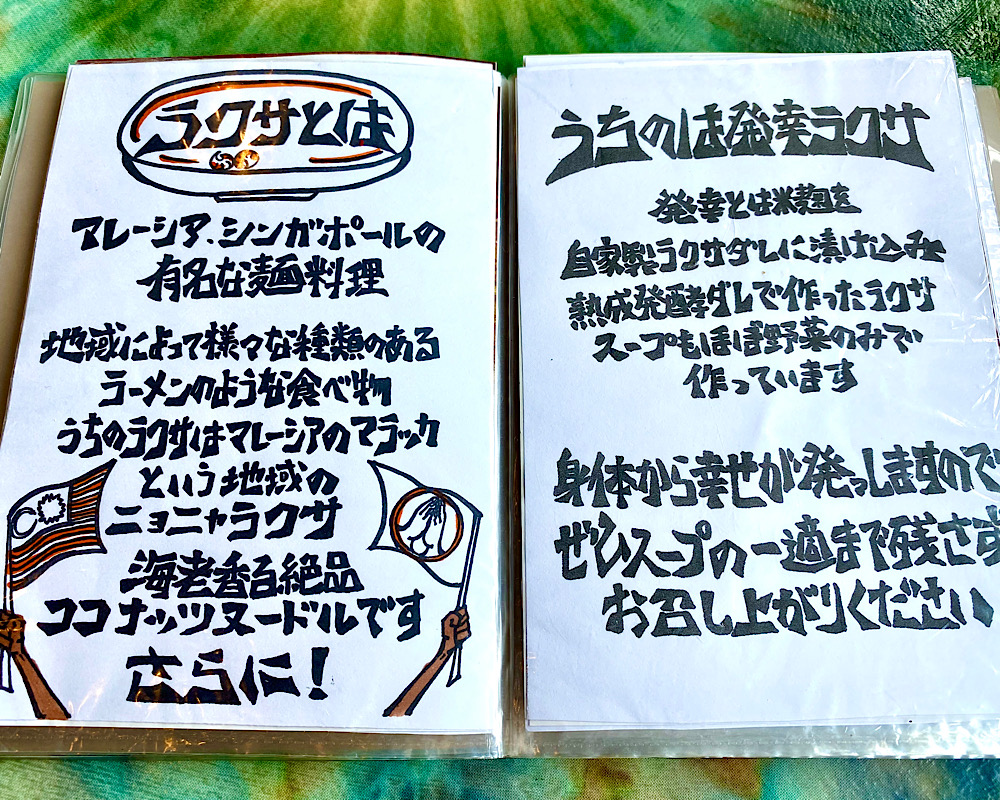 ラクサとは
マレーシア、シンガポールの
有名な麺料理
地域によって様々な種類のある
ラーメンのような食べ物
うちのラクサはマレーシアのマラッカ
という地域の
ニョニャラクサ
海老香る絶品
ココナッツヌードルです
さらに!
うちのは発幸ラクサ
発幸とは米麹を
自家製ラクサダレに漬け込み
熟成発酵ダレで作ったラクサ
スープもほぼ野菜のみで
作っています
身体から幸せが発っしますので
ぜひスープの一適まで残さず
お召し上がりください